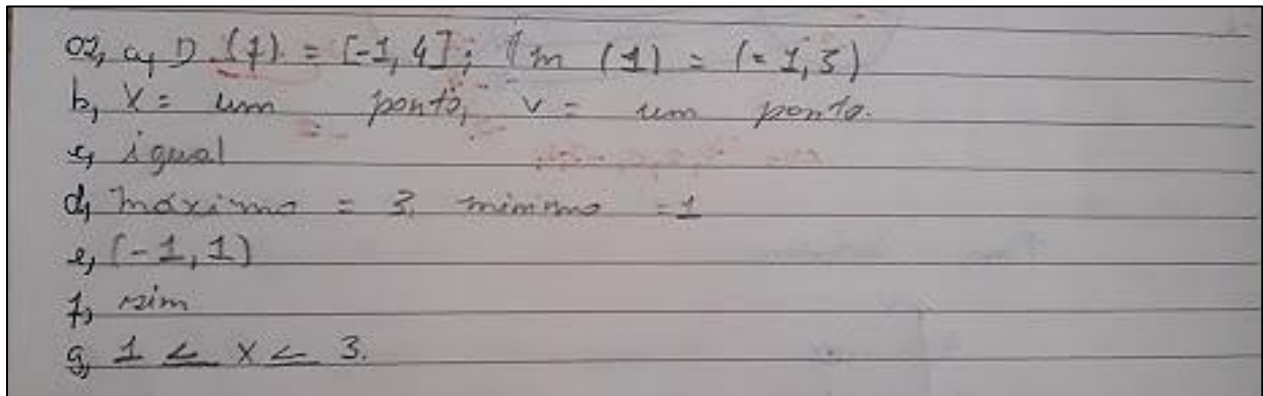 02, a, D (f) = [-1, 4]; Im (1) = (-1, 3)
b, X = um ponto, v = um ponto.
c, igual
d, máximo = 3, minmo = 1
e, [-1, 1)
f, sim
g, 1 ≤ X ≤ 3.